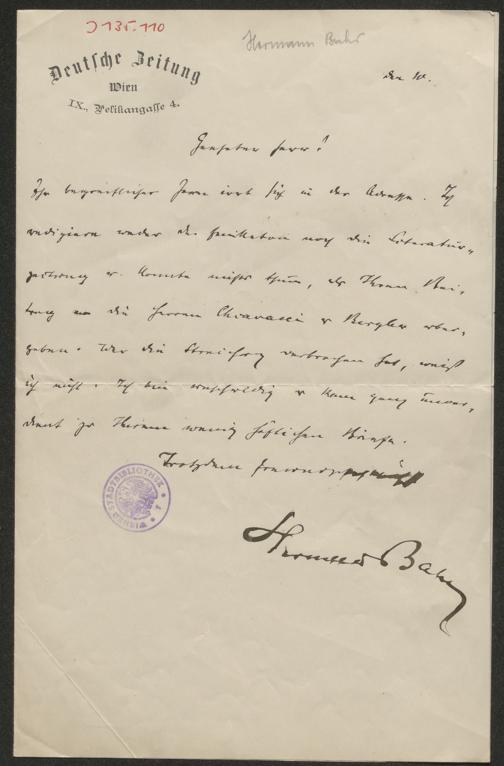 J 135.110
Hermann Bahr
Deutsche Zeitung
Wien
IX., Pelikangasse 4.
den 10.
Geehrter Herr!
Ihr begreiflicher Zorn irrt sich in der Adresse. Ich
redigiere weder das Feuilleton noch die Literatur-
zeitung u. konnte nichts thun, als Ihren Bei-
trag an die Herren Chiavacci u Bergler über-
geben. Wer die Streichung verbrochen hat, weiß
ich nicht. Ich bin unschuldig u kam ganz unver-
dient zu Ihrem wenig höflichen Briefe.
Trotzdem
WIENER STADTBIBLIOTHEK
Hermann Bahr